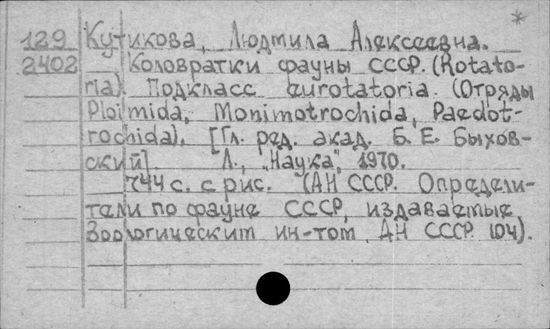 *
129 Кутикова, Людмила Алексеевна.
2402 Коловратки фауны СССР. (Rotato-
ria). Подкласс eurotatoria. (Отряды
Ploimida, Monimotrochida, Paedot-
rochida). [Гл. ред. акад. Б. Е. Быхов-
ский]. Л., "Наука", 1970.
744 с. с рис. (АН СССР. Определи-
тели по фауне СССР, издаваемые
Зоологическим ин-том АН СССР. 104).